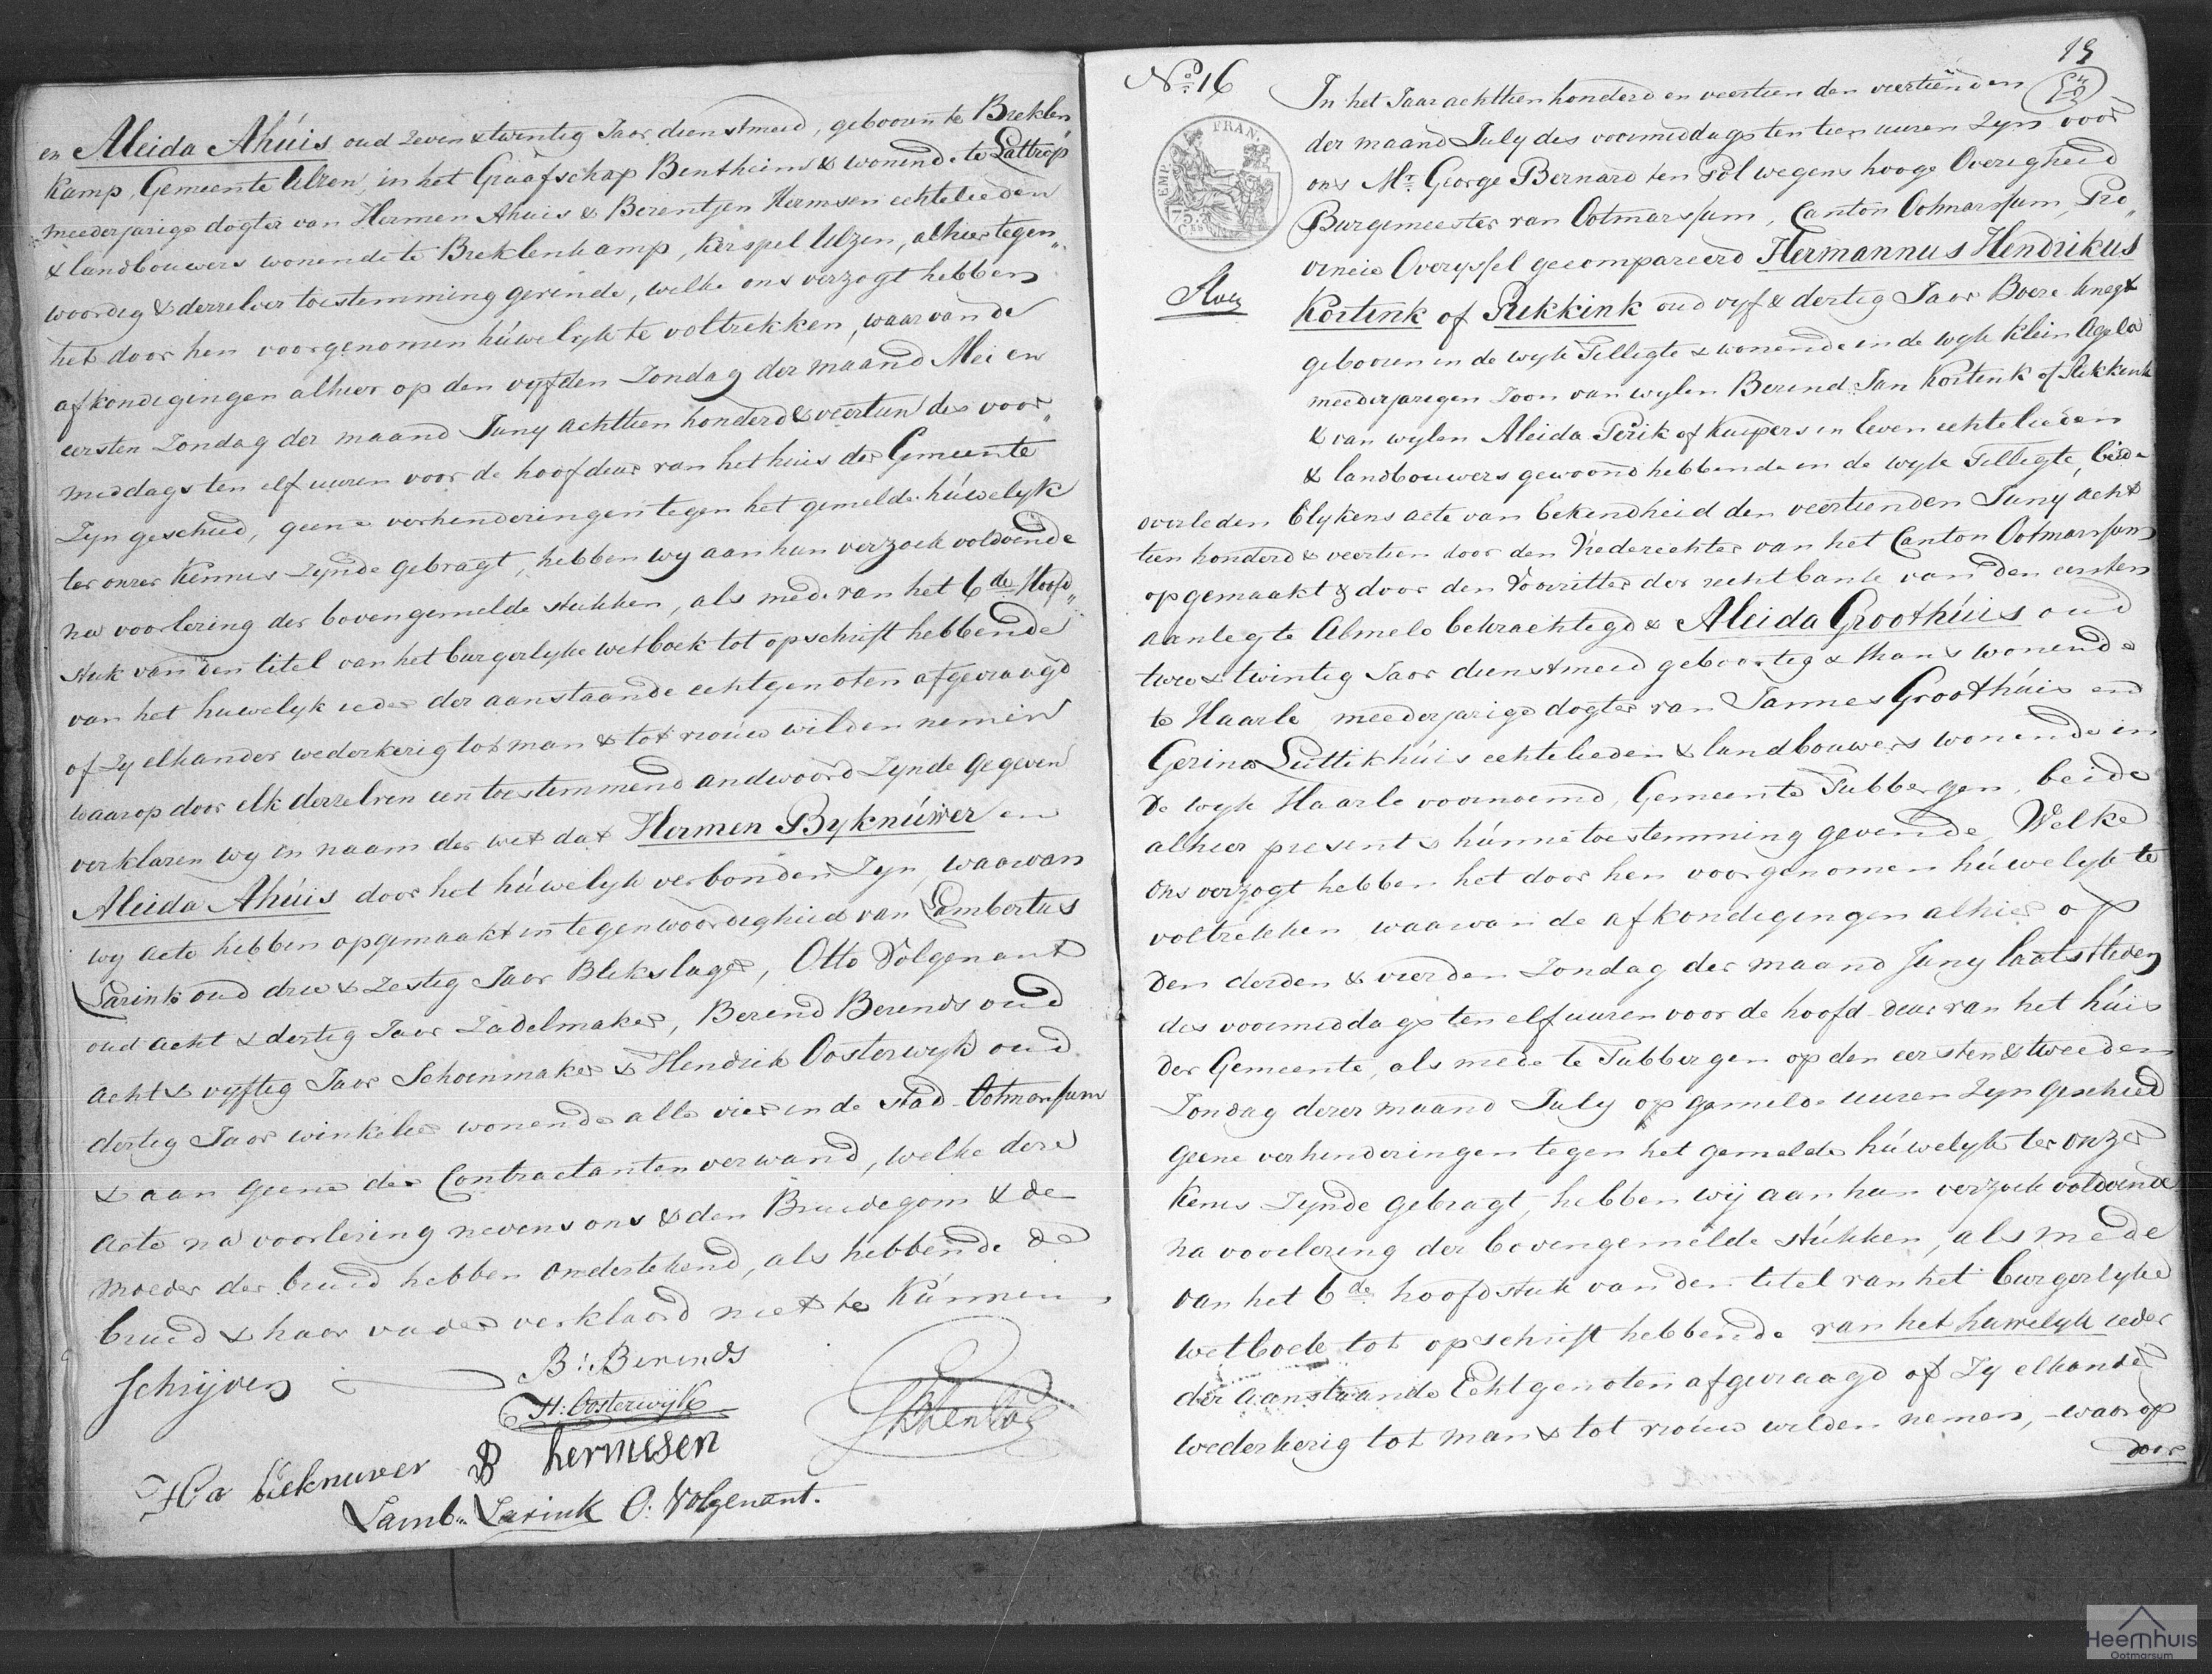 en Aleida Ahúis oud zeven & twintig Jaar dienstmeid, gebooren te Breklen
kamp, Gemeente Ulzen, in het Graafschap Bentheim & wonende te Lattrop
meederjarige dogter van Hermen Ahuis & Berentjen Hermsen echtelieden
& landbouwers wonende te Breklenkamp, kerspel Ulzen, alhier tegen„
woordig & derzelver toestemming gevende, welke ons verzogt hebben
het door hen voorgenomen húwelyk te voltrekken, waar van de
afkondigingen alhier op den vyfden Zondag der maand Mei en
eersten Zondag der maand Juny achttien honderd & veertien des voor„
middags ten elf uuren voor de hoofdeur van het huis der Gemeente
Zyn geschied, geene verhenderingen tegen het gemelde húwelyk
ter onzer kennis zynde gebragt, hebben wy aan hun verzoek voldoende
na voorlezing der bovengemelde stukken, als mede van het 6de Hoofd„
stuk van den titel van het burgerlyke wetboek tot opschrift hebbende
van het huwelyk ieder der aanstaande echtgenoten afgevraagd
of zy elkander wederkerig tot man & tot vroúw wilden nemen
waarop door elk derzelven een toestemmend andwoord zynde gegeven
verklaren wy in naam der wet dat Hermen Byknúwer en
Aleida Ahúis door het húwelyk verbonden zyn, waarvan
wy acte hebben opgemaakt in tegenwoordigheid van Lambertus
Larink oud drie & zestig Jaar Blekslager, Otto Volgenant
oud acht & dertig Jaar Zadelmaker, Berend Berends oud
acht & vyftig Jaar Schoenmaker & Hendrik Oosterwyk oud
dertig Jaar winkelier wonende alle vier in de stad Ootmarssum
& aan geene der Contractanten verwand, welke deze
acte na voorlezing nevens ons & den Bruidegom & de
moeder der bruid hebben onderteekend, als hebbende de
bruid & haar vader verklaard niet te kúnnen
schryven
B: Berends
H: Oosterwijk
Ha bieknuver B hermesen
Lamb: Larink O: Volgenant.
19
No. 16
In het Jaar achttien honderd en veertien den veertienden
der maand July des voormiddags ten tien uuren zyn voor
ons Mr. George Bernard ten Pol wegens hooge Overigheid
Burgemeester van Ootmarssum, Canton Ootmarssum, Pro„
vincie Overyssel gecompareerd Hermannus Hendrikus
Kortink of Rekkink oud vyf & dertig Jaar Boere knegt
gebooren in de wyk Tilligte & wonende in de wyk klein Agelo
meederjarigen Zoon van wylen Berend Jan Kortink of Rekkink
& van wylen Aleida Perik of Kuipers in leven echtelieden
& landbouwers gewoond hebbende in de wyk Tilligte, beide
overleden blykens acte van bekendheid den veertienden Juny acht
tien honderd & veertien door den Vrederechter van het Canton Ootmarssum
opgemaakt & door den Voorzitter der rechtbank van den eersten
aanleg te Almelo bekrachtigd & Aleida Groothúis oud
twee & twintig Jaar dienstmeid geboortig & thans wonende
te Haarle, meederjarige dogter van Jannes Groothúis end
Gerina Luttikhúis echtelieden & landbouwers wonende in
de wyk Haarle voornoemd, Gemeente Tubbergen, beide
alhier present & húnne toestemming gevende, Welke
ons verzogt hebben het door hen voorgenomen húwelyk te
voltrekken waarvan de afkondigingen alhier op
den derden & vierden Zondag der maand Juny laatstleden
des voormiddags ten elf uuren voor de hoofd-deur van het húis
der Gemeente, als mede te Tubbergen op den eersten & tweeden
Zondag dezer maand July op gemelde uuren zyn geschied
geene verhenderingen tegen het gemelde húwelyk ter onzer
kenis zynde gebragt, hebben wij aan hun verzoek voldoende
na voorlezing der bovengemelde stúkken, als mede
van het 6de hoofdstuk van den titel van het burgerlyke
wetboek tot opschrift hebbende van het huwelyk ieder
der aanstaande Echtgenoten afgevraagd of zy elkander
wederkerig tot man & tot vroúw wilden nemen, – waarop
door
EMP. FRAN.
75
Heemhuis
Ootmarsum